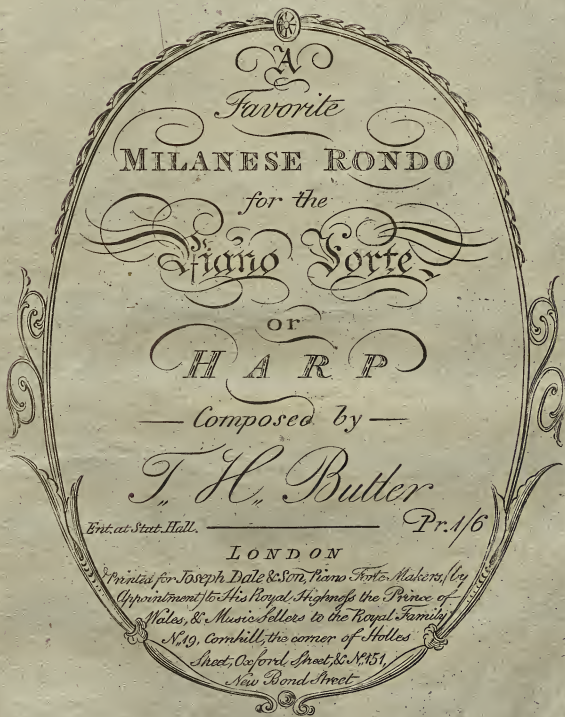 A
Favorite
MILANESE RONDO
for the
Piano Forte
or
HARP
Composed by
T. H. Butler
Ent. at Stat. Hall. Pr. 1/6
LONDON
Printed for Joseph Dale & Son, Piano Forte Makers, (by
Appointment) to His Royal Highness the Prince of
Wales, & Music Sellers to the Royal Family
No. 19, Cornhill, the corner of Holles
Street, Oxford Street, & No. 151,
New Bond Street